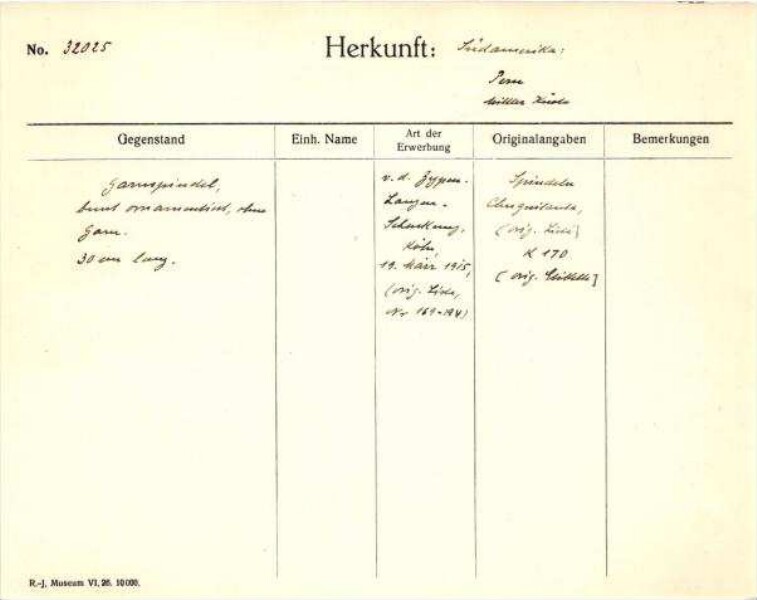 No. 32025 Herkunft: Südamerika:
Peru
Mittlere Küste
Gegenstand Einh. Name Art der Erwerbung Originalangaben Bemerkungen
Garnspindel,
bunt ornamentiert, ohne
Garn.
30 cm lang.
v. d. Zypen.
Langen.
Schenkung,
Köln,
19. März 1915,
(orig. Liste,
Nr 169-194)
Spindeln
(orig. Liste)
K 170
(orig. Etikette)
R.-J. Museum VI, 26. 10000.